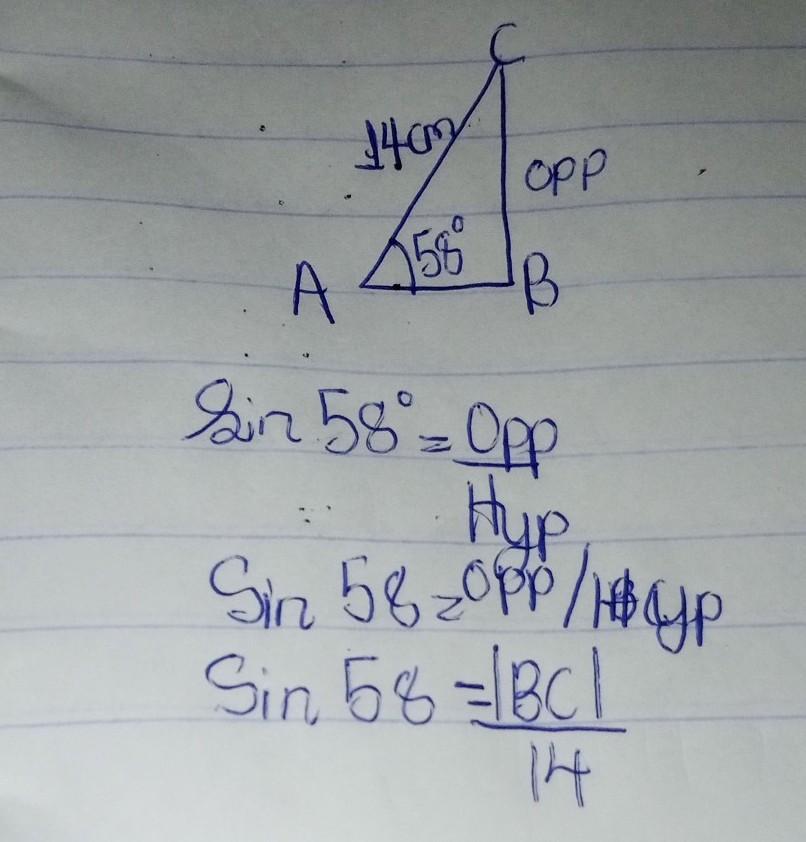 C
14cm
opp
58°
A
B
Sin 58° = Opp
Hyp
Sin 58 = opp / Hyp
Sin 58 = |BC|
14